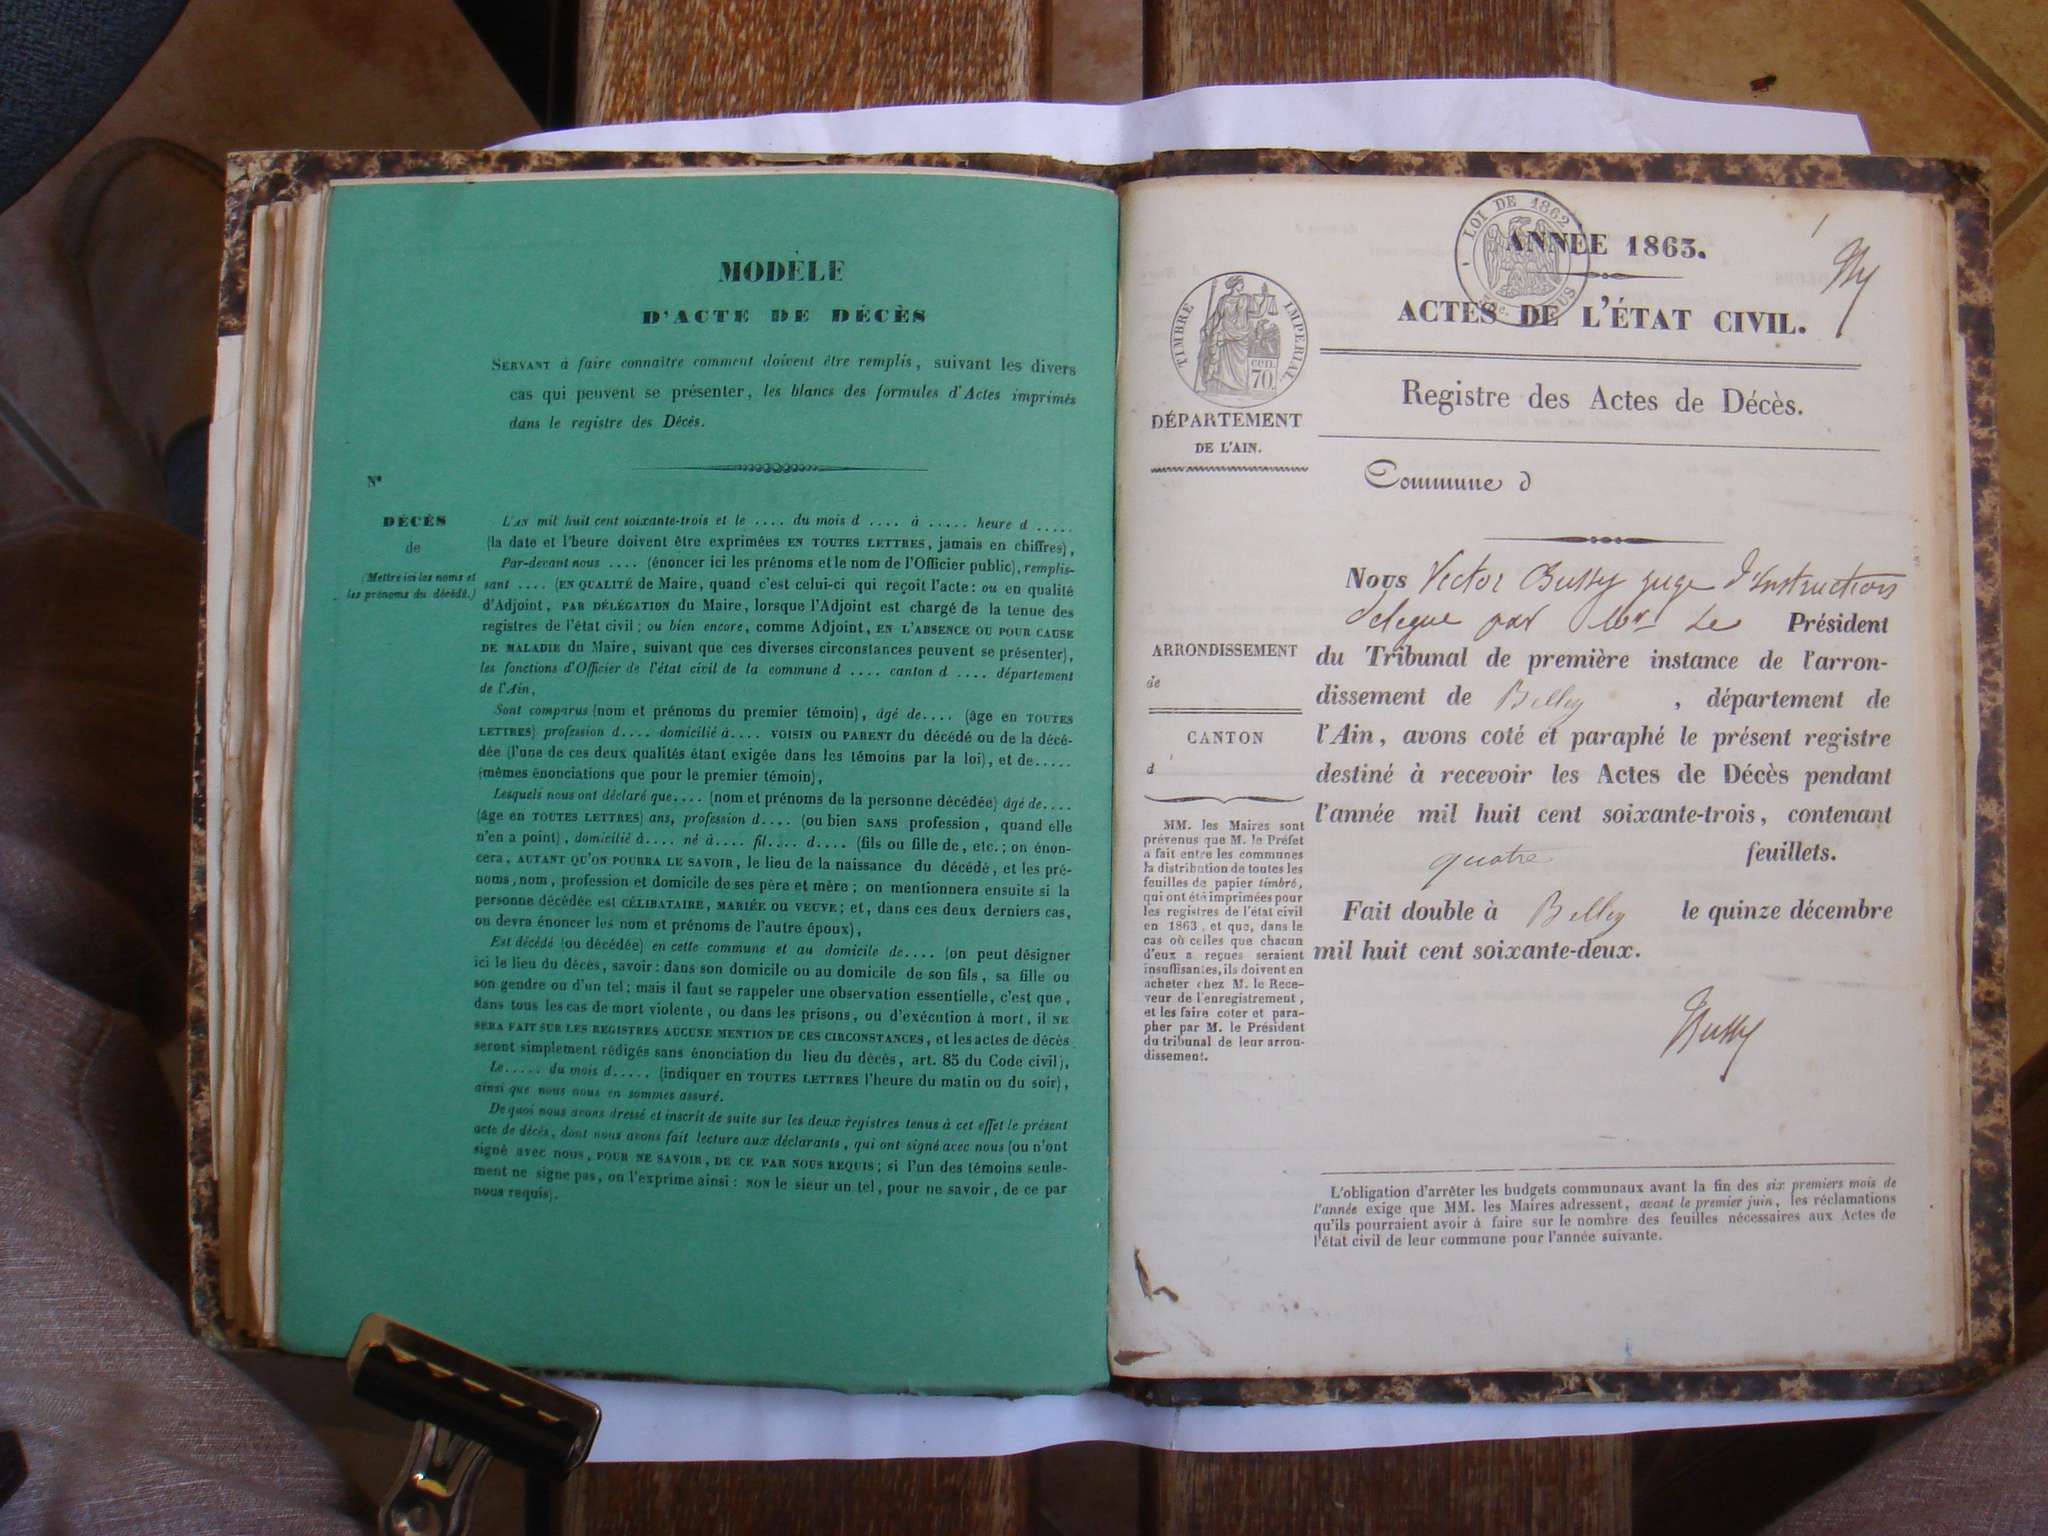 MODÈLE
D'ACTE DE DÉCÈS
SERVANT à faire connaître comment doivent être remplis, suivant les divers
cas qui peuvent se présenter, les blancs des formules d'Actes imprimés
dans le registre des Décès.
N°
DÉCÈS
de
(Mettre ici les noms et
les prénoms du décédé.)
L'AN mil huit cent soixante-trois et le .... du mois d .... à ..... heure d .....
(la date et l'heure doivent être exprimées EN TOUTES LETTRES, jamais en chiffres),
Par-devant nous .... (énoncer ici les prénoms et le nom de l'Officier public), remplis-
sant .... (EN QUALITÉ de Maire, quand c'est celui-ci qui reçoit l'acte: ou en qualité
d'Adjoint, PAR DÉLÉGATION du Maire, lorsque l'Adjoint est chargé de la tenue des
registres de l'état civil; ou bien encore, comme Adjoint, EN L'ABSENCE OU POUR CAUSE
DE MALADIE du Maire, suivant que ces diverses circonstances peuvent se présenter),
les fonctions d'Officier de l'état civil de la commune d .... canton d .... département
de l'Ain,
Sont comparus (nom et prénoms du premier témoin), âgé de.... (âge en TOUTES
LETTRES) profession d.... domicilié à.... VOISIN OU PARENT du décédé ou de la décé-
dée (l'une de ces deux qualités étant exigée dans les témoins par la loi), et de.....
(mêmes énonciations que pour le premier témoin),
Lesquels nous ont déclaré que.... (nom et prénoms de la personne décédée) âgé de....
(âge en TOUTES LETTRES) ans, profession d.... (ou bien SANS profession, quand elle
n'en a point), domicilié à.... né à.... fil.... d.... (fils ou fille de, etc.; on énon-
cera, AUTANT QU'ON POURRA LE SAVOIR, le lieu de la naissance du décédé, et les pré-
noms, nom, profession et domicile de ses père et mère; on mentionnera ensuite si la
personne décédée est CÉLIBATAIRE, MARIÉE OU VEUVE; et, dans ces deux derniers cas,
on devra énoncer les nom et prénoms de l'autre époux),
Est décédé (ou décédée) en cette commune et au domicile de.... (on peut désigner
ici le lieu du décès, savoir: dans son domicile ou au domicile de son fils, sa fille ou
son gendre ou d'un tel; mais il faut se rappeler une observation essentielle, c'est que,
dans tous les cas de mort violente, ou dans les prisons, ou d'exécution à mort, il NE
SERA FAIT SUR LES REGISTRES AUCUNE MENTION DE CES CIRCONSTANCES, et les actes de décès
seront simplement rédigés sans énonciation du lieu du décès, art. 85 du Code civil),
Le..... du mois d..... (indiquer en TOUTES LETTRES l'heure du matin ou du soir),
ainsi que nous nous en sommes assuré.
De quoi nous avons dressé et inscrit de suite sur les deux registres tenus à cet effet le présent
acte de décès, dont nous avons fait lecture aux déclarants, qui ont signé avec nous (ou n'ont
signé avec nous, POUR NE SAVOIR, DE CE PAR NOUS REQUIS; si l'un des témoins seule-
ment ne signe pas, on l'exprime ainsi: NON le sieur un tel, pour ne savoir, de ce par
nous requis).
LOI DE 1862
1
ANNÉE 1863.
ACTES DE L'ÉTAT CIVIL.
TIMBRE IMPÉRIAL
CEN.
70
DÉPARTEMENT
DE L'AIN.
Registre des Actes de Décès.
Commune d
Nous Victor Bussy juge d'instruction
delegué par Mr. Le Président
du Tribunal de première instance de l'arron-
dissement de Belley, département de
l'Ain, avons coté et paraphé le présent registre
destiné à recevoir les Actes de Décès pendant
l'année mil huit cent soixante-trois, contenant
quatre feuillets.
Fait double à Belley le quinze décembre
mil huit cent soixante-deux.
Bussy
ARRONDISSEMENT
de
CANTON
d
MM. les Maires sont
prévenus que M. le Préfet
a fait entre les communes
la distribution de toutes les
feuilles de papier timbré,
qui ont été imprimées pour
les registres de l'état civil
en 1863, et que, dans le
cas où celles que chacun
d'eux a reçues seraient
insuffisantes, ils doivent en
acheter chez M. le Rece-
veur de l'enregistrement,
et les faire coter et para-
pher par M. le Président
du tribunal de leur arron-
dissement.
L'obligation d'arrêter les budgets communaux avant la fin des six premiers mois de
l'année exige que MM. les Maires adressent, avant le premier juin, les réclamations
qu'ils pourraient avoir à faire sur le nombre des feuilles nécessaires aux Actes de
l'état civil de leur commune pour l'année suivante.